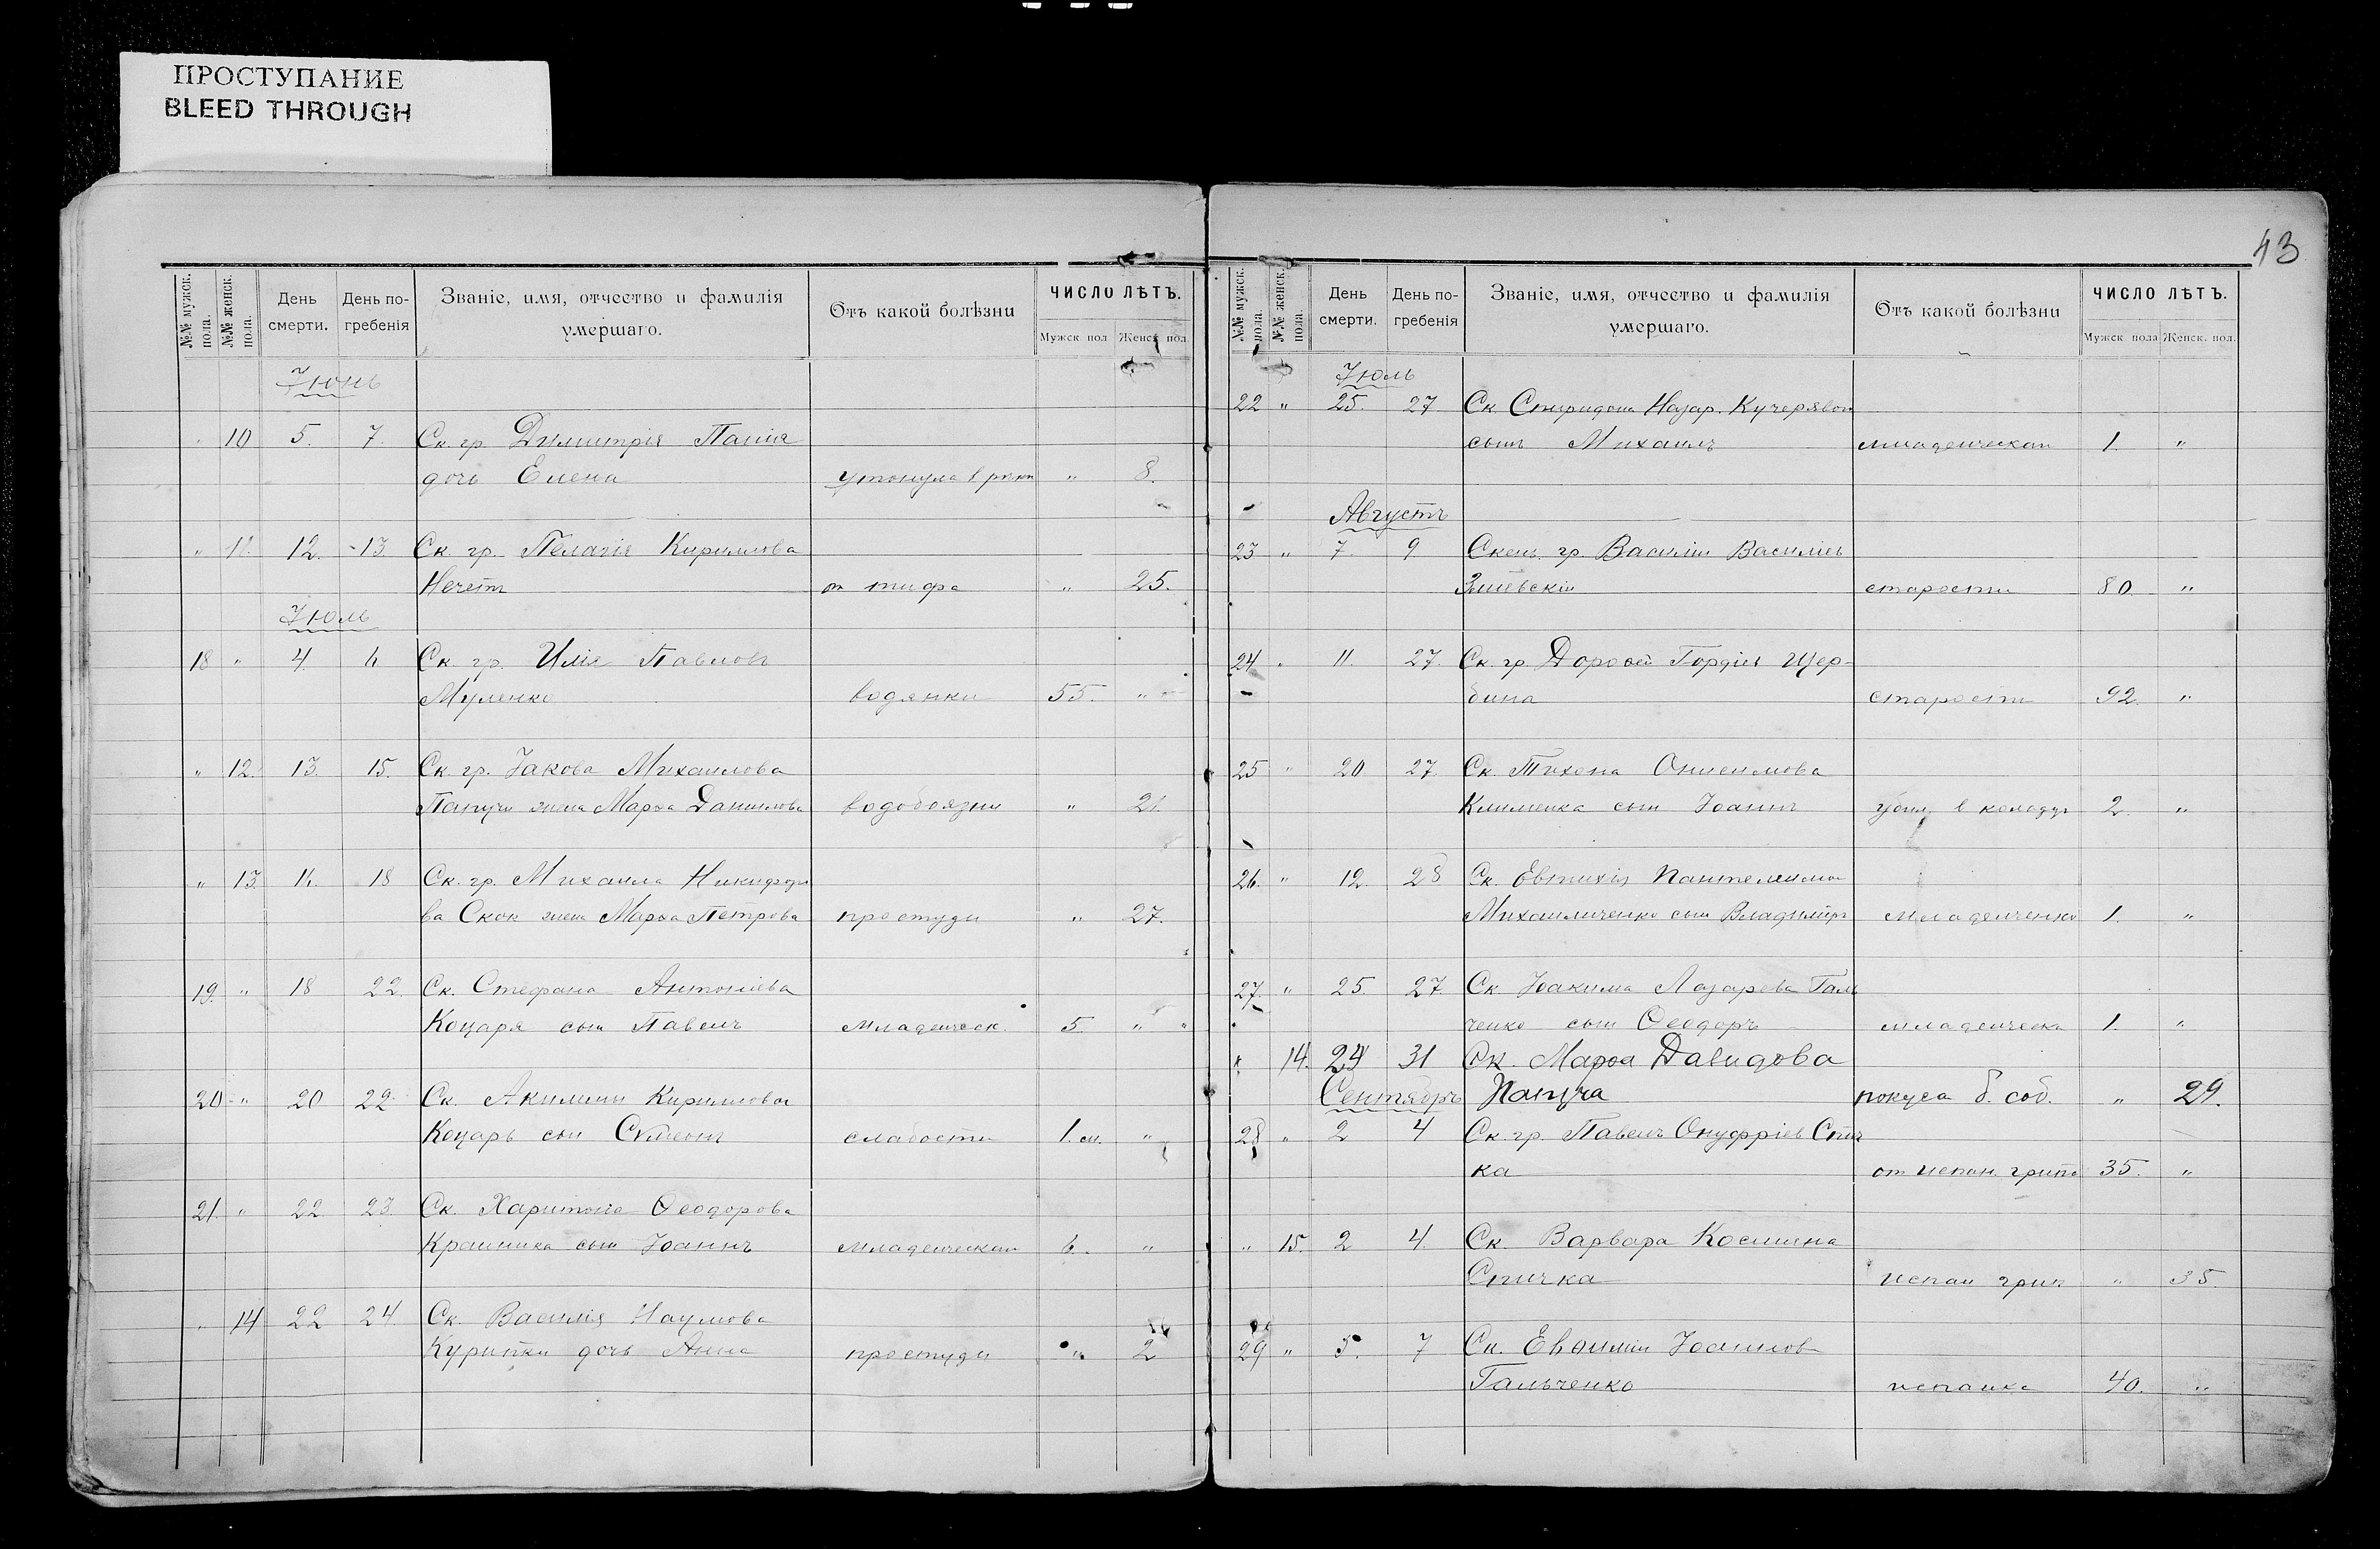 ПРОСТУПАНИЕ
BLEED THROUGH
43
№№ мужск. пола.
№№ женск. пола.
День смерти.
День погребенія
Званіе, имя, отчество и фамилія умершаго.
Отъ какой болѣзни
ЧИСЛО ЛѢТЪ.
Мужск пол Женск пол.
Іюнь
" 10 5. 7. Ск. гр. Димитрія
дочь Елена утонула в рѣки " 8.
" 11. 12. 13. Ск. гр. Пелагія Кирилова
Нечет от тифа " 25.
Іюль
18 " 4. 6 Ск. гр. Илія Павлов
Муленко водянки 55. "
" 12. 13. 15. Ск. гр. Іакова Михаилова
Папучи жена Марѳа Данилова водобоязни " 21.
" 13. 16. 18 Ск. гр. Михаила Никифоро
ва Скок жена Марѳа Петрова простуди " 27.
19. " 18 22. Ск. Стефана Антоніева
Коцаря сын Павелъ младенческ. 5. "
20 " 20 22. Ск. Акилины Кириловой
Коцарь сын Сѵмеонъ слабости 1. м. "
21. " 22 23. Ск. Харитона Ѳеодорова
сын Іоаннъ младенческая 6. "
" 14 22 24. Ск. Василія Наумова
Курипки дочь Анна простуди " 2
№№ мужск. пола.
№№ женск. пола.
День смерти.
День погребенія
Званіе, имя, отчество и фамилія умершаго.
Отъ какой болѣзни
ЧИСЛО ЛѢТЪ.
Мужск. пола Женск. пол.
Іюль
22 " 25. 27 Ск. Спиридона Назар. Кучерявой
сынъ Михаилъ младенческая 1. "
Августъ
23 " 7. 9 Скен. гр. Василій Василіев
Зміевскій старости 80. "
24 " 11. 27. Ск. гр. Дороѳей Гордіев Щер-
бина старости 92. "
25 " 20 27. Ск. Тихона Онисимова
Клименка сын Іоаннъ в колодц 2. "
26. " 12. 28 Ск. Евтихія Пантелеимо
Михаиличенко сын Владиміръ младенческо 1. "
27. " 25. 27. Ск. Іоакима Лазарева Галь
ченко сын Ѳеодоръ младенческа 1. "
" 14. 24 31 Ск. Марѳа Давидова
Сентябрь Папуча покуса б. соб. " 29.
28 " 2 4 Ск. гр. Павелъ Онуфріев Спич
ка от испан. грипа 35. "
" 15. 2 4. Ск. Варвара Косьмина
Спичка испан грип " 35.
29 " 5. 7 Ск. Евѳимій Іоаннов
Гальченко испанка 40. "